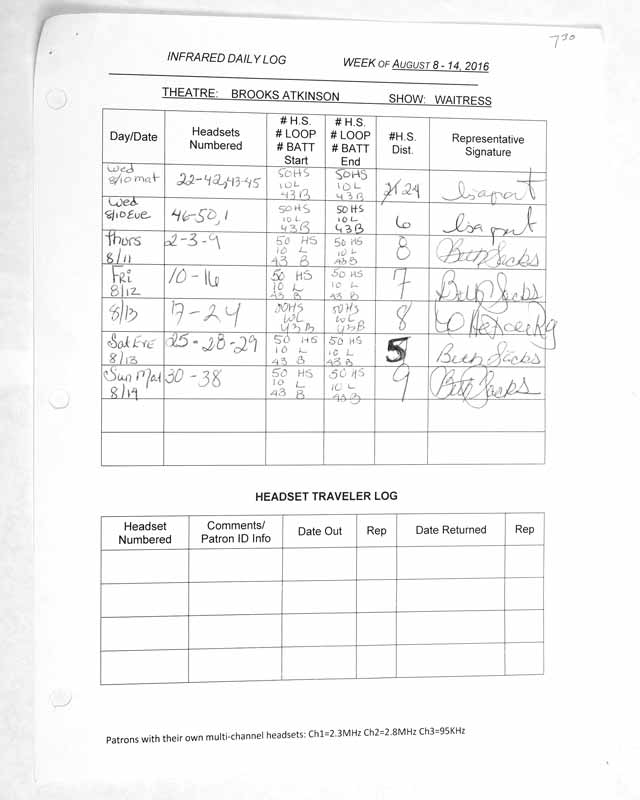 730
INFRARED DAILY LOG WEEK OF AUGUST 8 - 14, 2016
THEATRE: BROOKS ATKINSON SHOW: WAITRESS
Day/Date Headsets Numbered # H.S. # LOOP # BATT Start # H.S. # LOOP # BATT End #H.S. Dist. Representative Signature
Wed 8/10 mat 22-42, 43-45 50HS 10L 43B 50HS 10L 43B 24
Wed 8/10 Eve 46-50, 1 50HS 10L 43B 50HS 10L 43B 6
Thurs 8/11 2-3-9 50 HS 10 L 43 B 50 HS 10 L 43 B 8 Beth Jacks
Fri 8/12 10-16 50 HS 10 L 43 B 50 HS 10 L 43 B 7 Beth Jacks
8/13 17-24 50HS 43B 50HS 43B 8
Sat Eve 8/13 25-28-29 50 HS 10 L 43 B 50 HS 10 L 43B 5 Beth Jacks
Sun Mat 8/14 30-38 50 HS 10 L 43 B 50 HS 10 L 43B 9 Beth Jacks
HEADSET TRAVELER LOG
Headset Numbered Comments/ Patron ID Info Date Out Rep Date Returned Rep
Patrons with their own multi-channel headsets: Ch1=2.3MHz Ch2=2.8MHz Ch3=95KHz